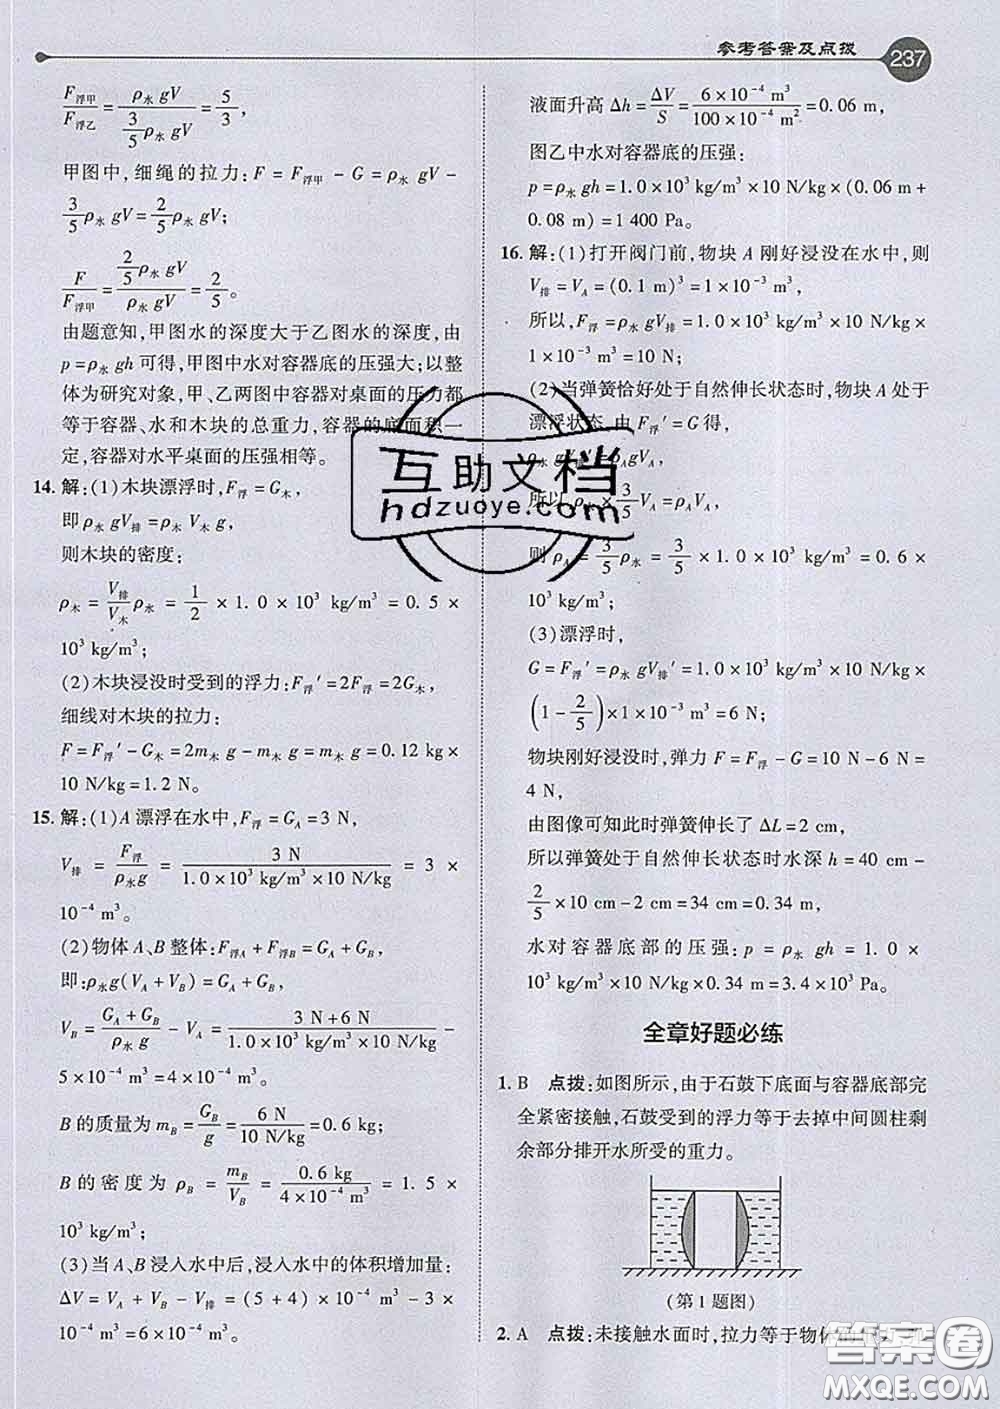 参考答案及点拨
237
F浮甲/F浮乙 = ρ水 gV/(3/5 ρ水 gV) = 5/3,
甲图中,细绳的拉力:F = F浮甲 - G = ρ水 gV -
3/5 ρ水 gV = 2/5 ρ水 gV;
F/F浮甲 = (2/5 ρ水 gV)/(ρ水 gV) = 2/5。
由题意知,甲图水的深度大于乙图水的深度,由
p=ρ水 gh 可得,甲图中水对容器底的压强大;以整
体为研究对象,甲、乙两图中容器对桌面的压力都
等于容器、水和木块的总重力,容器的底面积一
定,容器对水平桌面的压强相等。
14. 解:(1)木块漂浮时,F浮=G木,
即ρ水 gV排=ρ木 V木 g,
则木块的密度:
ρ木 = V排/V木 ρ水 = 1/2 × 1.0 × 10³ kg/m³ = 0.5 ×
10³ kg/m³;
(2)木块浸没时受到的浮力:F浮′=2F浮=2G木,
细线对木块的拉力:
F=F浮′-G木=2m木 g-m木 g=m木 g=0.12 kg×
10 N/kg=1.2 N。
15. 解:(1)A漂浮在水中,F浮=GA=3 N,
V排 = F浮/ρ水g = 3 N/(1.0×10³ kg/m³×10 N/kg) = 3 ×
10⁻⁴ m³。
(2)物体A、B整体:F浮A+F浮B=GA+GB,
即:ρ水g(VA+VB)=GA+GB,
VB = (GA+GB)/ρ水 g - VA = (3 N+6 N)/(1.0×10³ kg/m³×10 N/kg) -
5×10⁻⁴ m³=4×10⁻⁴ m³。
B的质量为mB=GB/g=6 N/(10 N/kg)=0.6 kg,
B的密度为ρB = mB/VB = 0.6 kg/(4×10⁻⁴ m³) = 1.5 ×
10³ kg/m³;
(3)当A、B浸入水中后,浸入水中的体积增加量:
ΔV = VA + VB - V排 = (5 + 4) × 10⁻⁴ m³ - 3 ×
10⁻⁴ m³=6×10⁻⁴ m³。
液面升高 Δh=ΔV/S=(6×10⁻⁴ m³)/(100×10⁻⁴ m²)=0.06 m,
图乙中水对容器底的压强:
p=ρ水 gh=1.0×10³ kg/m³×10 N/kg×(0.06 m+
0.08 m)=1 400 Pa。
16. 解:(1)打开阀门前,物块A刚好浸没在水中,则
V排=VA=(0.1 m)³=1×10⁻³ m³,
所以,F浮=ρ水 gV排=1.0×10³ kg/m³×10 N/kg×
1×10⁻³ m³=10 N;
(2)当弹簧恰好处于自然伸长状态时,物块A处于
漂浮状态,由F浮′=G得,
ρ水 gV排′=ρAgVA,
所以 ρ水×3/5VA=ρAVA,
则 ρA = 3/5ρ水 = 3/5 × 1.0 × 10³ kg/m³ = 0.6 ×
10³ kg/m³;
(3)漂浮时,
G=F浮′=ρ水 gV排′=1.0×10³ kg/m³×10 N/kg
×(1-2/5)×1×10⁻³ m³=6 N;
物块刚好浸没时,弹力F=F浮-G=10 N-6 N=
4 N,
由图像可知此时弹簧伸长了ΔL=2 cm,
所以弹簧处于自然伸长状态时水深h=40 cm-
2/5×10 cm-2 cm=34 cm=0.34 m,
水对容器底部的压强: p = ρ水 gh = 1.0 ×
10³ kg/m³×10 N/kg×0.34 m=3.4×10³ Pa。
全章好题必练
1. B 点拨:如图所示,由于石鼓下底面与容器底部完
全紧密接触,石鼓受到的浮力等于去掉中间圆柱剩
余部分排开水所受的重力。
(第1题图)
2. A 点拨:未接触水面时,拉力等于物体
互助文档
hdzuoye.com
答案卷
MXQE.COM